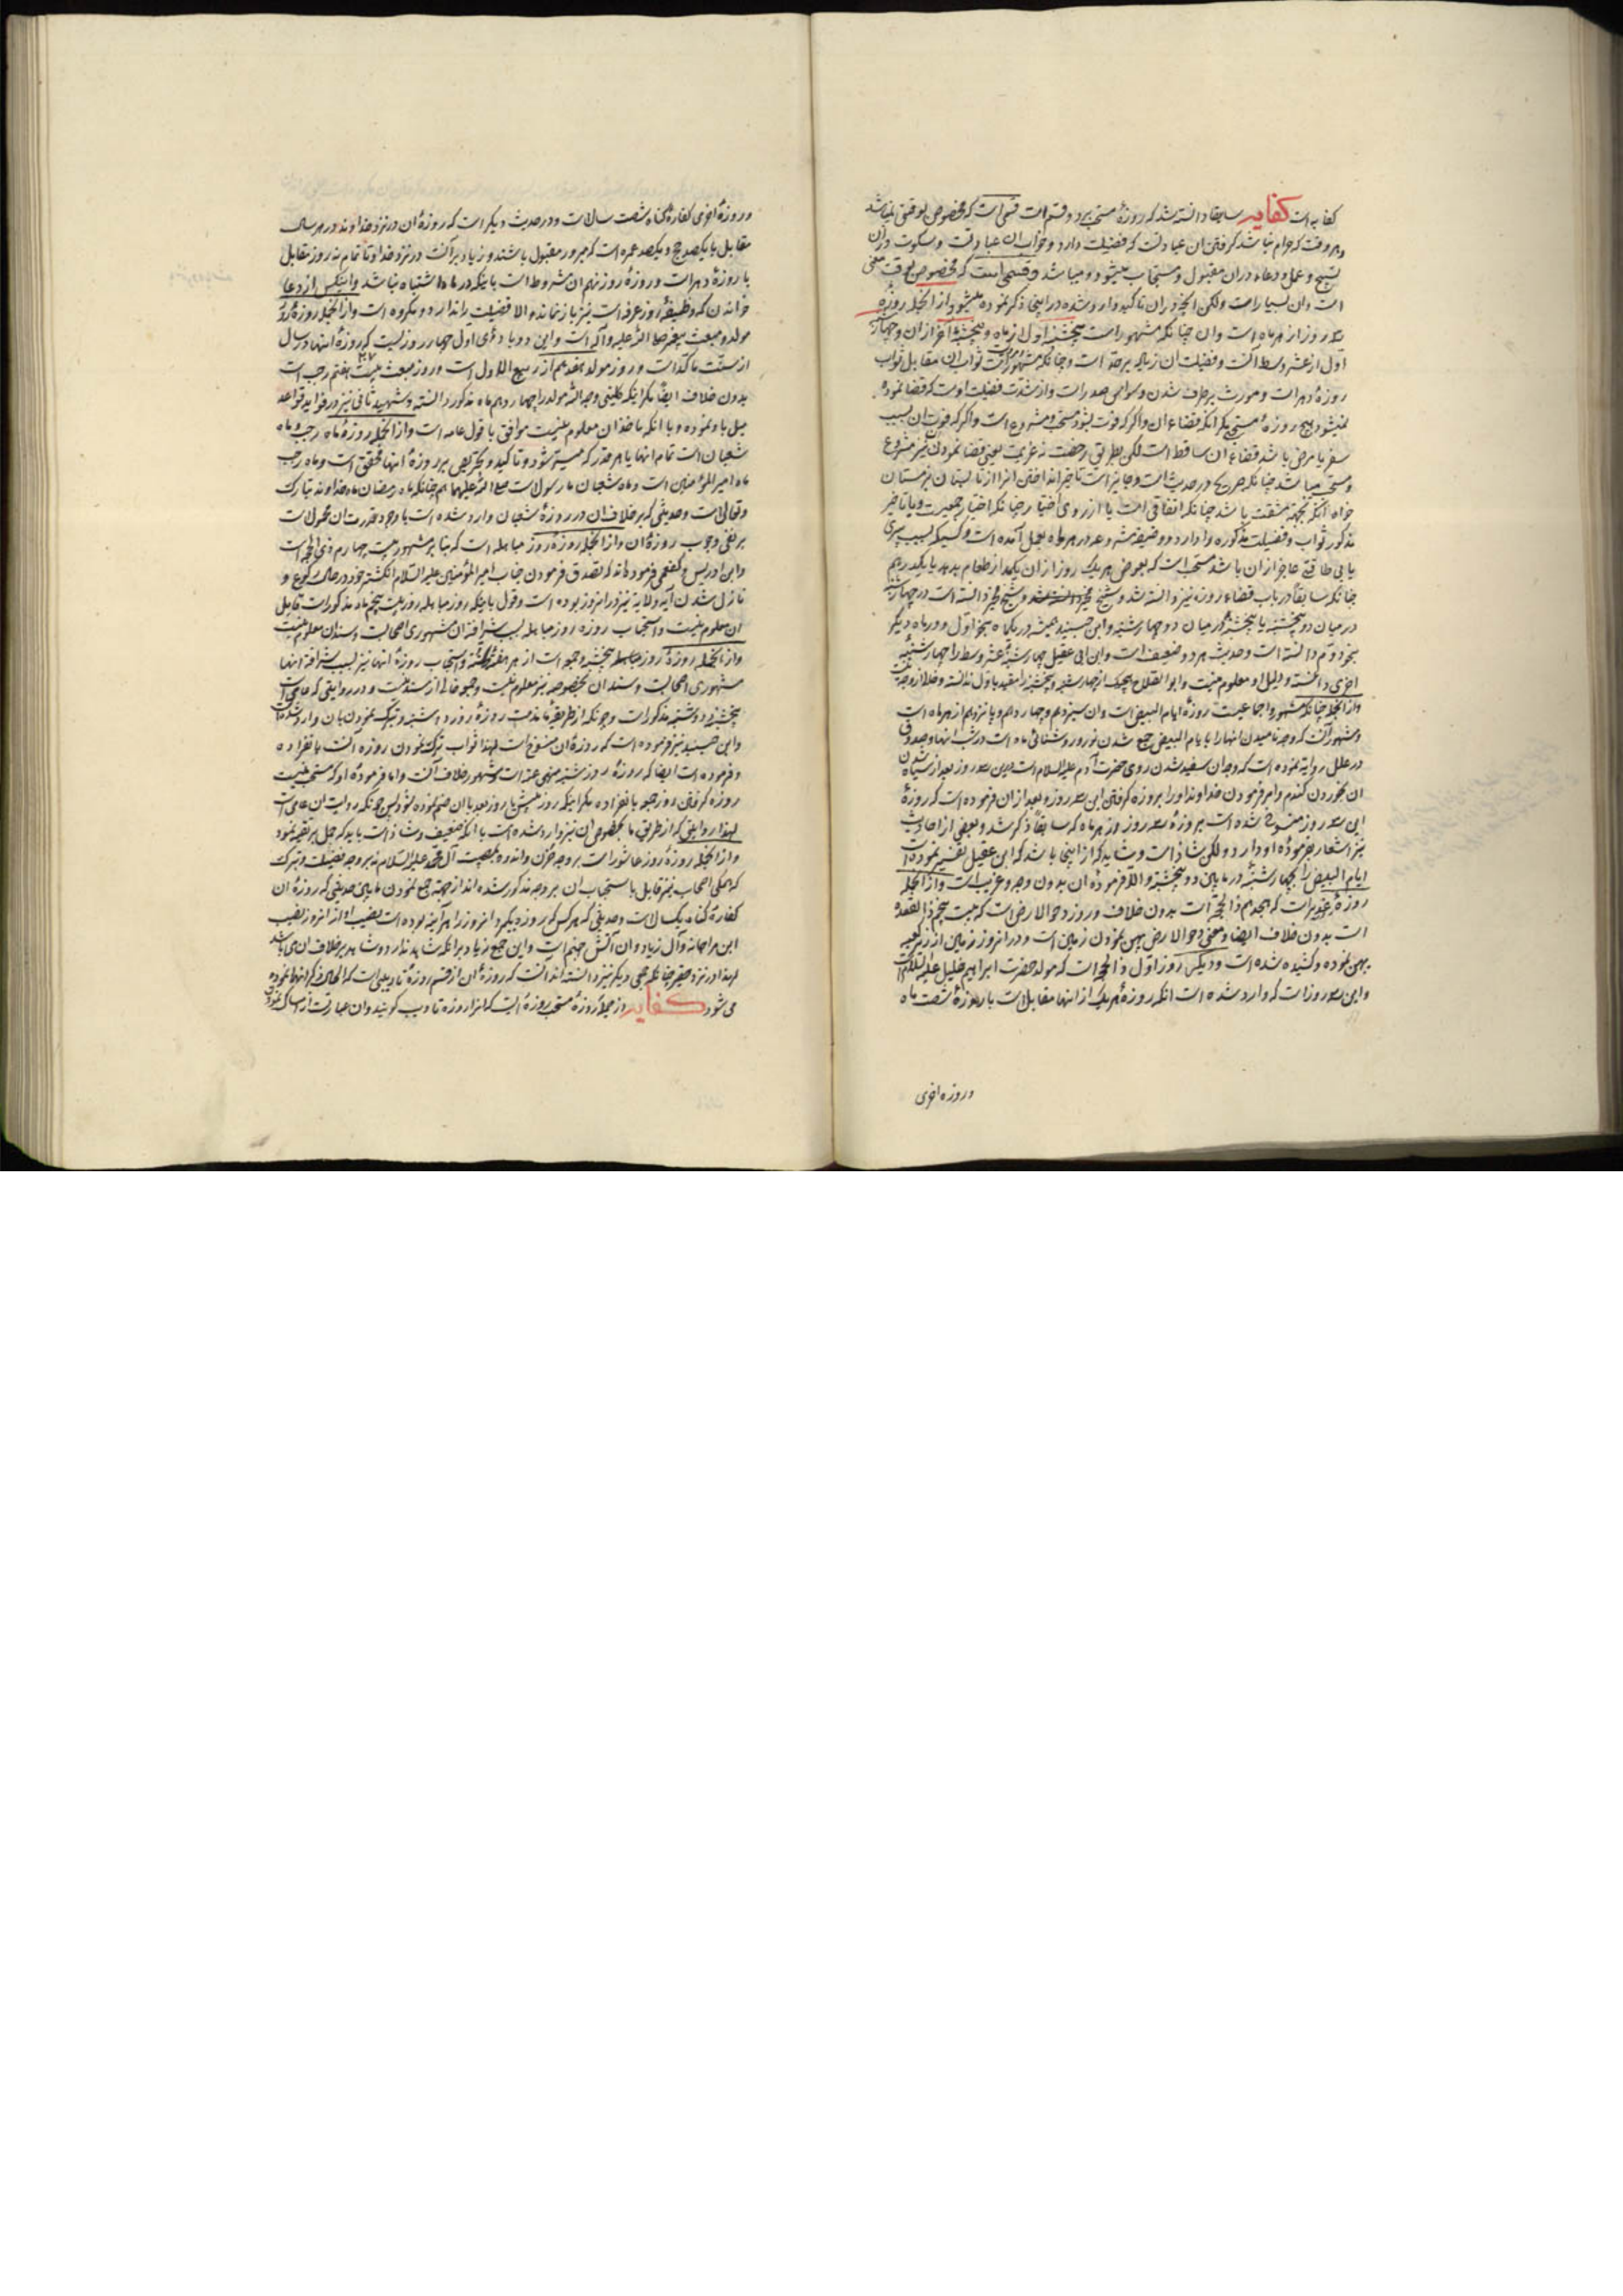 کفایه است کفایه سابقا دانسته شد که روزهٔ مستحبی بر دو قسم است قسمی است که مخصوص بوقتی نمیباشد
و هر وقت که حرام نباشد گرفتن ان عبادتست که فضیلت دارد و خواب ان عبادتست و سکوت در ان
تسبیح و عمل و دعاء در ان مقبول و مستجاب میشود و میباشد و قسمی است که مخصوص بوقت معینی
است و ان بسیار است ولکن انچه در ان تاکید وارد شده در اینجا ذکر نموده میشود از انجمله روزهٔ
سه روز از هر ماه است و ان چنانکه مشهور است پنجشنبه اول از ماه و پنجشنبهٔ آخر از ان و چهارشنبه
اول از عشر وسط انست و فضیلت ان زیاده بر حد است و چنانکه مشهور است ثواب ان مقابل ثواب
روزهٔ دهر است و مورث برطرف شدن وسواس صدر است و از شدت فضیلت اوست که قضا نموده
نمیشود هیچ روزهٔ مستحبی مگر انکه قضاء ان و اگر که فوت بشود مستحب و مشروع است و اگر که فوت ان بسبب
سفر یا مرض باشد قضاء ان ساقط است لکن بطریق رخصت نه عزیمت یعنی قضا نمودن نیز مشروع
و مستحب میباشد چنانکه صریح در حدیث است و جایز است تاخیر انداختن انرا از تابستان بزمستان
خواه انکه بجهة مشقت باشد چنانکه اتفاقی است یا از روی اختیار چنانکه اختیار جمعیست و با تاخیر
مذکور ثواب و فضیلت مذکوره را دارد
یا بی طاقتی عاجز از ان باشد مستحب است که بعوض هر یک روز از ان یکمد از طعام بدهد یا یکدرهم
چنانکه سابقاً در باب قضاء روزه نیز دانسته شد و شیخ مخیر دانسته است در چهارشنبه
در میان دو پنجشنبه یا پنجشنبهٔ در میان دو چهارشنبه و ابن جنید همیشه در یکماه بنحو اول و در ماه دیگر
بنحو دوم دانسته است و حدیث هر دو ضعیف است و ابن ابی عقیل چهارشنبهٔ عشر وسط را چهارشنبهٔ
اخری دانسته و دلیل او معلوم نیست و ابو الصلاح هیچیک از چهارشنبه و پنجشنبه را مقید باول ندانسته
و از انجمله چنانکه مشهور و اجماعیست روزهٔ ایام البیض است و ان سیزدهم و چهاردهم و پانزدهم از هر ماه است
و مشهور انست که وجه نامیدن انها را بایام البیض جمع شدن نور و روشنائی ماه است در شب انها و صدوق
در علل روایة نموده است که وجه ان سفید شدن روی حضرت آدم علیه السلام است درین سه روز بعد از سیاه شدن
ان بخوردن گندم و امر فرمودن خداوند او را بروزه گرفتن این سه روز و بعد از ان فرموده است که روزهٔ
این سه روز منسوخ شده است بروزهٔ سه روز در هر ماه که سابقاً ذکر شد و بعضی از احادیث
نیز اشعار بفرمودهٔ او دارد ولکن شاذ است و شاید که از اینجا باشد که ابن عقیل تفسیر نموده است
ایام البیض را بچهارشنبه در مابین دو پنجشنبه و الا فرمودهٔ ان بدون وجه و غریب است و از انجمله
روزهٔ غدیر است که هیجدهم ذا الحجة است بدون خلاف و روز دحو الارض است که بیست و پنجم ذا القعده
است بدون خلاف ایضا و معنی دحو الارض پهن نمودن زمین است و در انروز زمین از زیر کعبه
پهن نموده و کشیده شده است و دیگر روز اول ذا الحجه است که مولد حضرت ابراهیم خلیل علیه السلام است
و این سه روز است که وارد شده است انکه روزهٔ هر یک از انها مقابل است با روزهٔ شصت ماه
و روزه اخری
و روزهٔ اخری کفارهٔ گناه شصت سال است و در حدیث دیگر است که روزهٔ ان در نزد خداوند در هر سال
مقابل با یکصد حج و یکصد عمره است که مبرور مقبول باشند و زیاده بر انست در نزد خدا و تا تمام نه روز مقابل
با روزهٔ دهر است و روزهٔ روز نهم ان مشروط است باینکه در ماه اشتباه نباشد و اینکس از دعا
خواندن که وظیفهٔ روز عرفه است نیز باز نماند و الا فضیلت را ندارد و مکروه است و از انجمله روزهٔ روز
مولد و مبعث پیغمبر صلی الله علیه و آله است و این دو با دحو الارض اول چهار روزیست که روزهٔ انها در سال
از سنت مؤکد است و روز مولد هفدهم از ربیع الاول است و روز مبعث بیست هفتم رجب است
۲۷
بدون خلاف ایضاً مگر اینکه کلینی رحمه الله مولد را چهاردهم ماه مذکور دانسته و شهید ثانی نیز در فواید قواعد
میل باو نموده و با انکه ماخذ ان معلوم نیست موافق با قول عامه است و از انجمله روزهٔ ماه رجب و ماه
شعبان است تمام انها یا هر قدر که میسر شود و تاکید و تحریص بر روزهٔ انها محقق است و ماه رجب
ماه امیر المؤمنین است و ماه شعبان ماه رسول است صلی الله علیهما و الهما چنانکه ماه رمضان ماه خداوند تبارک
و تعالی است و حدیثی که بر خلاف ان در روزهٔ شعبان وارد شده است با وجود قدرت ان محمول است
بر نفی وجوب روزهٔ ان و از انجمله روزهٔ روز مباهله است که بنا بر مشهور بیست چهارم ذی الحجه است
و ابن ادریس و کفعمی فرموده اند که تصدق فرمودن جناب امیر المؤمنین علیه السلام انگشتر خود در حال رکوع و
نازل شدن آیهٔ ولایة نیز در انروز بوده است و قول باینکه روز مباهله روز بیست پنجم ماه مذکور است قابل
ان معلوم نیست و استحباب روزهٔ روز مباهله بسبب شرافة ان مشهوری اصحابست و سند ان معلوم نیست
و از انجمله روزهٔ روز پنجشنبه و جمعه است از هر هفته و استحباب روزهٔ انها نیز بسبب شرافة انها
مشهوری اصحابست و سند ان بخصوصه نیز معلوم نیست و جمعه خالی از سند نیست و در روایتی که عامی است
پنجشنبه و دوشنبه مذکور است و چونکه از طریقهٔ ما مذمت روزهٔ روز دوشنبه و تبرک نمودن بان وارد شده است
و ابن جنید نیز فرموده است که روزهٔ ان منسوخ است لهذا ثواب ترک نمودن روزه انست بانفراده
و فرموده است ایضا که روزهٔ روز شنبه منهی عنه است و مشهور خلاف انست و اما فرمودهٔ او که مستحب نیست
روزه گرفتن روز جمعه بانفراده مگر اینکه روز پیش یا روز بعد بان ضم نموده شود پس چونکه روایت ان عامی است
لهذا روایتی که از طریق ما بخصوص ان نیز وارد شده است با انکه ضعیف و شاذ است باید که حمل بر تقیه نمود
و از انجمله روزهٔ روز عاشورا است بر وجه حزن و اندوه بمصیبت آل محمد علیهم السلام نه بر وجه فضیلت و تبرک
که همگی اصحاب نیز قابل باستحباب ان بر وجه مذکور شده اند از جهة جمع نمودن مابین حدیثی که روزهٔ ان
کفارهٔ گناه یکسال است و حدیثی که هر کس که روزه بگیرد انروز را هر آینه بوده است نصیب او از انروز نصیب
ابن مرجانه و آل زیاد و ان آتش جهنم است و این جمع زیاده بر انکه شاهد ندارد و شاهد بر خلاف ان میباشد
لهذا در نزد حقیر چنانکه جمعی دیگر نیز دانسته اند انست که روزهٔ ان از قسم روزهٔ تادیبی است که الحال ذکر انها نموده
می شود کفایه از جملهٔ روزهٔ مستحب روزهٔ ایست که انرا روزه تادیب گویند و ان عبارتست از امساک نمودن